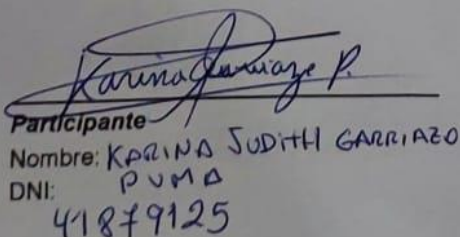 Karina Garriazo P.
Participante
Nombre: KARINA JUDITH GARRIAZO
DNI: PUMA
41879125